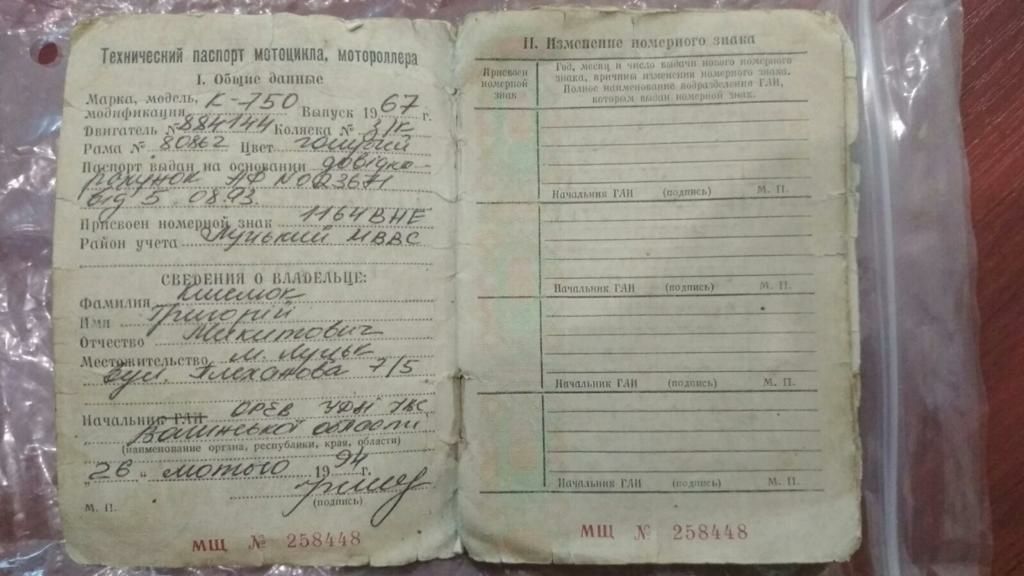 Технический паспорт мотоцикла, мотороллера
I. Общие данные
Марка, модель, К-750
модификация Выпуск 19 67 г.
Двигатель № 884144 Коляска № Б/К
Рама № 80862 Цвет голубий
Паспорт выдан на основании довідка-
рахунок № 023671
від 5.08.93
Присвоен номерной знак 1164 ВНЕ
Район учета Луцький МВВС
СВЕДЕНИЯ О ВЛАДЕЛЬЦЕ:
Фамилия
Имя Григорій
Отчество Микитович
Местожительство м. Луцьк
вул. Плеханова 7/5
Начальник ГАИ
Волинської області
(наименование органа, республики, края, области)
„ 26 “ лютого 19 94 г.
(подпись)
М. П.
МЩ № 258448
II. Изменение номерного знака
Присвоен
номерной
знак
Год, месяц и число выдачи нового номерного
знака, причины изменения номерного знака.
Полное наименование подразделения ГАИ,
которым выдан номерной знак.
Начальник ГАИ (подпись) М. П.
Начальник ГАИ (подпись) М. П.
Начальник ГАИ (подпись) М. П.
Начальник ГАИ (подпись) М. П.
МЩ № 258448